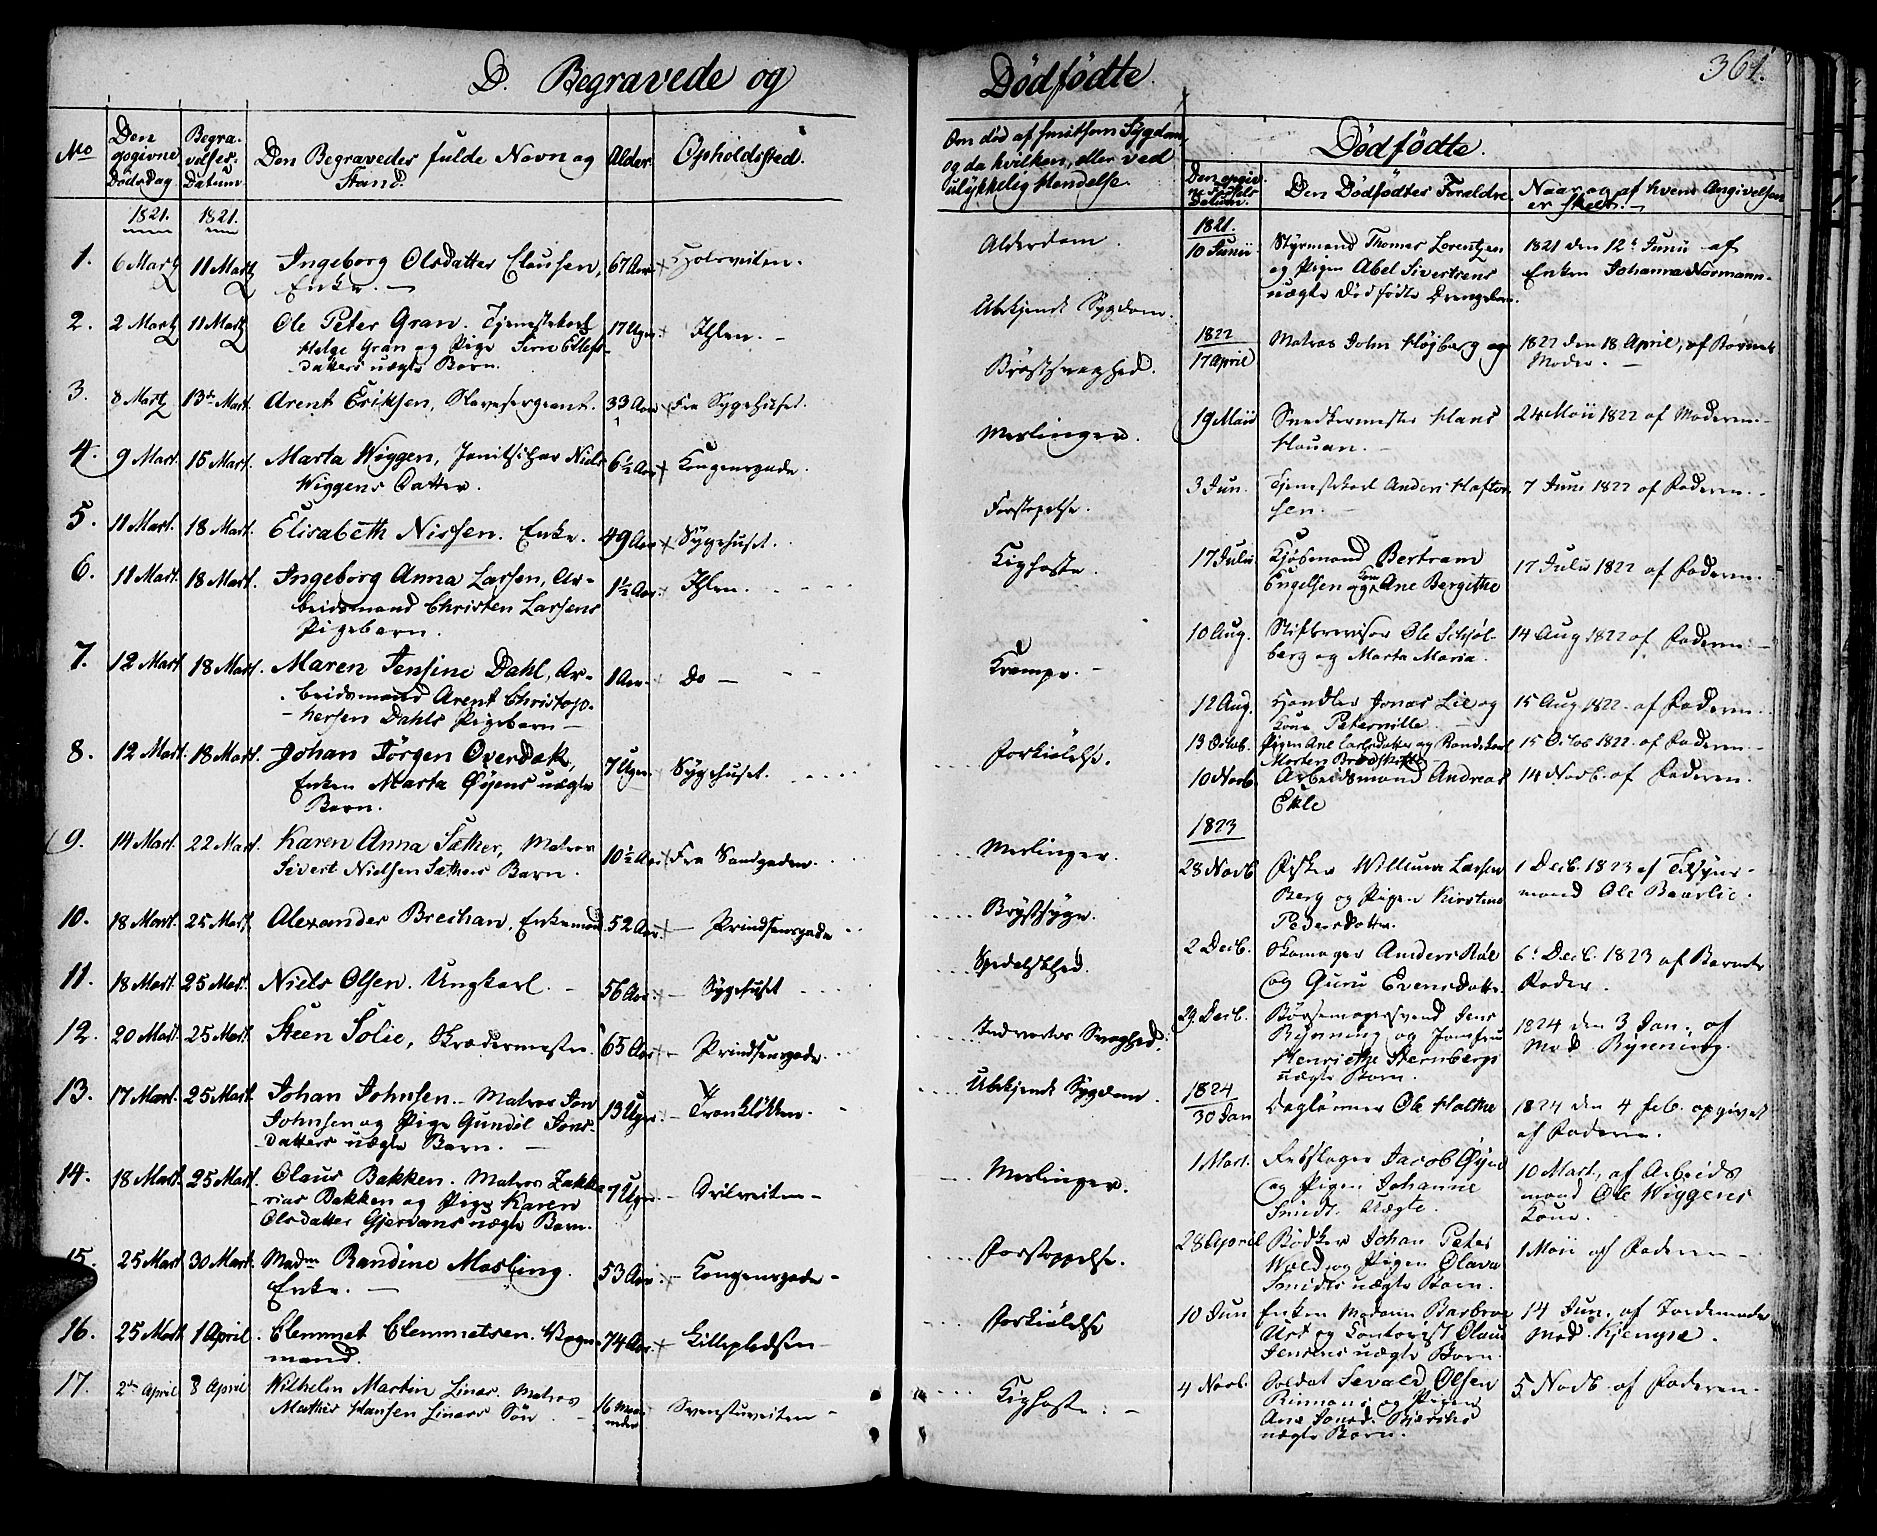 D. Begravede og Dødfødte. 361.
No
Den opgivne Dödsdag
Begravelses-Datum
Den Begravedes fulde Navn og Stand.
Alder.
Opholdssted.
Om død af smitsom Sÿgdom,
og da hvilken, eller ved
ulykkelig Hendelse.
Dødfödte.
Den opgivne Fødsels Datum.
Den Dödfödtes Foraldre
Naar og af hvem Angivelsen
er skeet.
1821. 1821.
1. 6 Martz 11 Martz Ingeborg Olsdatter Clausen, 67 Aar Alderdom.
Enke. —
2. 2 Martz 11 Martz Ole Peter Gran. Tjenestekarl 17 Uger. Ihlen. — Ubekjendt Sygdom.
Helge Gran og Pige
datters uægte Barn.
3. 8 Martz 13de Mart. Arent Eriksen, Slavesergeant. 33 Aar Fra Sygehuset. Brøstsvaghed.
4. 9 Mart. 15 Mart. Marta Wiggen, Niels 6½ Aar Kongensgade. Meslinger.
Wiggens Datter.
5. 11 Mart. 18 Mart. Elisabeth Nissen. Enke. 49 Aar Sygehuset. Forstopelse.
6. 11 Mart. 18 Mart. Ingeborg Anna Larsen, Ar- 1½ Aar. Ihlen. Kighoste.
beidsmand Christen Larsens
Pigebarn.
7. 12 Mart. 18 Mart. Maren Jensine Dahl, Ar- 1 Aar. Do — Krampe. —
beidsmand Arent Christop-
hersen Dahls Pigebarn —
8. 12 Mart. 18 Mart. Johan Jörgen Overdak, 7 Uger Sygehuset. Forkiølelse.
Enken Marta Øÿens uægte
Barn.
9. 14 Mart. 22 Mart. Karen Anna Sæther, Matros 10½ Aar Fra Sandgaden. Meslinger.
Sivert Nielsen Sæthers Barn.
10. 18 Mart. 25 Mart. Alexander Brechan, Enkemand 52 Aar. Prindsensgade Brÿstsÿge.
11. 18 Mart. 25 Mart. Niels Olsen. Ungkarl. 56 Aar. Sygehuset Spedalskhed.
12. 20 Mart. 25 Mart. Steen Solie, Skrædermester. 65 Aar Prindsensgade Indvortes Svaghed.
13. 17 Mart. 25 Mart. Johan Johnsen. Matros Jon 13 Uger. Ubekjendt Sygdom.
Johnsen og Pige Gundil Jons-
datters uægte Barn. —
14. 18 Mart. 25 Mart. Claus Bakken. Matros Zakka 7 Uger Meslinger.
rias Bakken og Pige Karen
Olsdatter Gjervans uægte Barn.
15. 25 Mart 30 Mart. Madm Randine Mosling. 53 Aar Kongensgade — Forstoppelse.
Enke. —
16. 25 Mart 1 April. Clemmet Clemmetsen. Vogn- 74 Aar Lillepladsen — Forkiølelse
mand.
17. 2den April 8 April Wilhelm Martin Linæs. Matros 16 Maaneder Svenstuveiten — Kighoste. —
Mathis Hansen Linæs Sön
1821.
10 Junii Styrmand Thomas Lorentzen 1821 den 12te Junii af
og Pigen Abel Sivertsens Enken Johanna Normann.
uægte dödfödte Drengebarn.
1822
17 April Matros John Høÿberg og 1822 den 18 April, af Barnets
Moder. —
19 Maii Snedkermester Hans 24 Maii 1822 af Moderen.
Houan. —
3 Jun. Tjenestekarl Anders Hafter 7 Juni 1822 af Faderen.
sen. —
17 Julii Kjøbmand Bertram 17 Julii 1822 af Faderen.
Engelsen og Kone Ane Bergithe
10 Aug. Stiftsrevisor Ole Schjøl- 14 Aug 1822 af Faderen.
berg og Marta Maria.
12 Aug. Handler Jonas Lie og 15 Aug 1822. af Faderen
Kone Peternille
13 Octob. Pigen Ane Carlsdatter og 15 Octob 1822. af Faderen.
Morten
10 Novb. Arbeidsmand Andreas 14 Novb. af Faderen.
Ekle
1823
28 Novb Fisker Willum Larsen 1 Decb. 1823 af Tilsyns-
Berg og Pigen Kirstine mand Ole Baarlie.
Pedersdatter.
2 Decb. Skomager Anders Røe 6te Decb. 1823 af Barnets
og Guru Evensdatter Fader.
29 Decb. Børsemagersvend Jens 1824 den 3 Jan., af
Rÿnning og Jomfru Mad. Rÿnning.
Henriethe Sternbergs
uægte Barn.
1824
30 Jan Daglønner Ole Holthe 1824 den 4 Feb. opgivet
af Faderen.
1 Mart. Rebslager Jacob Øÿen 10 Mart., af Arbeids
og Pigen Johanne mand Ole Wiggens
Smidt. Uægte. Kone.
28 April Bødker Johan Peter 1 Maii af Faderen —
Wold og Pigen Olava
Smidts uægte Barn.
10 Jun Enken Madam Barbroe 14 Jun. af Jordemoder
Ust og Contorist Olaus Mad. Kjengse.
Jensens uægte Barn.
4 Novb. Soldat Sevald Olsen 5. Novb. af Faderen.
og Pigen
Ane
uægte Barn.